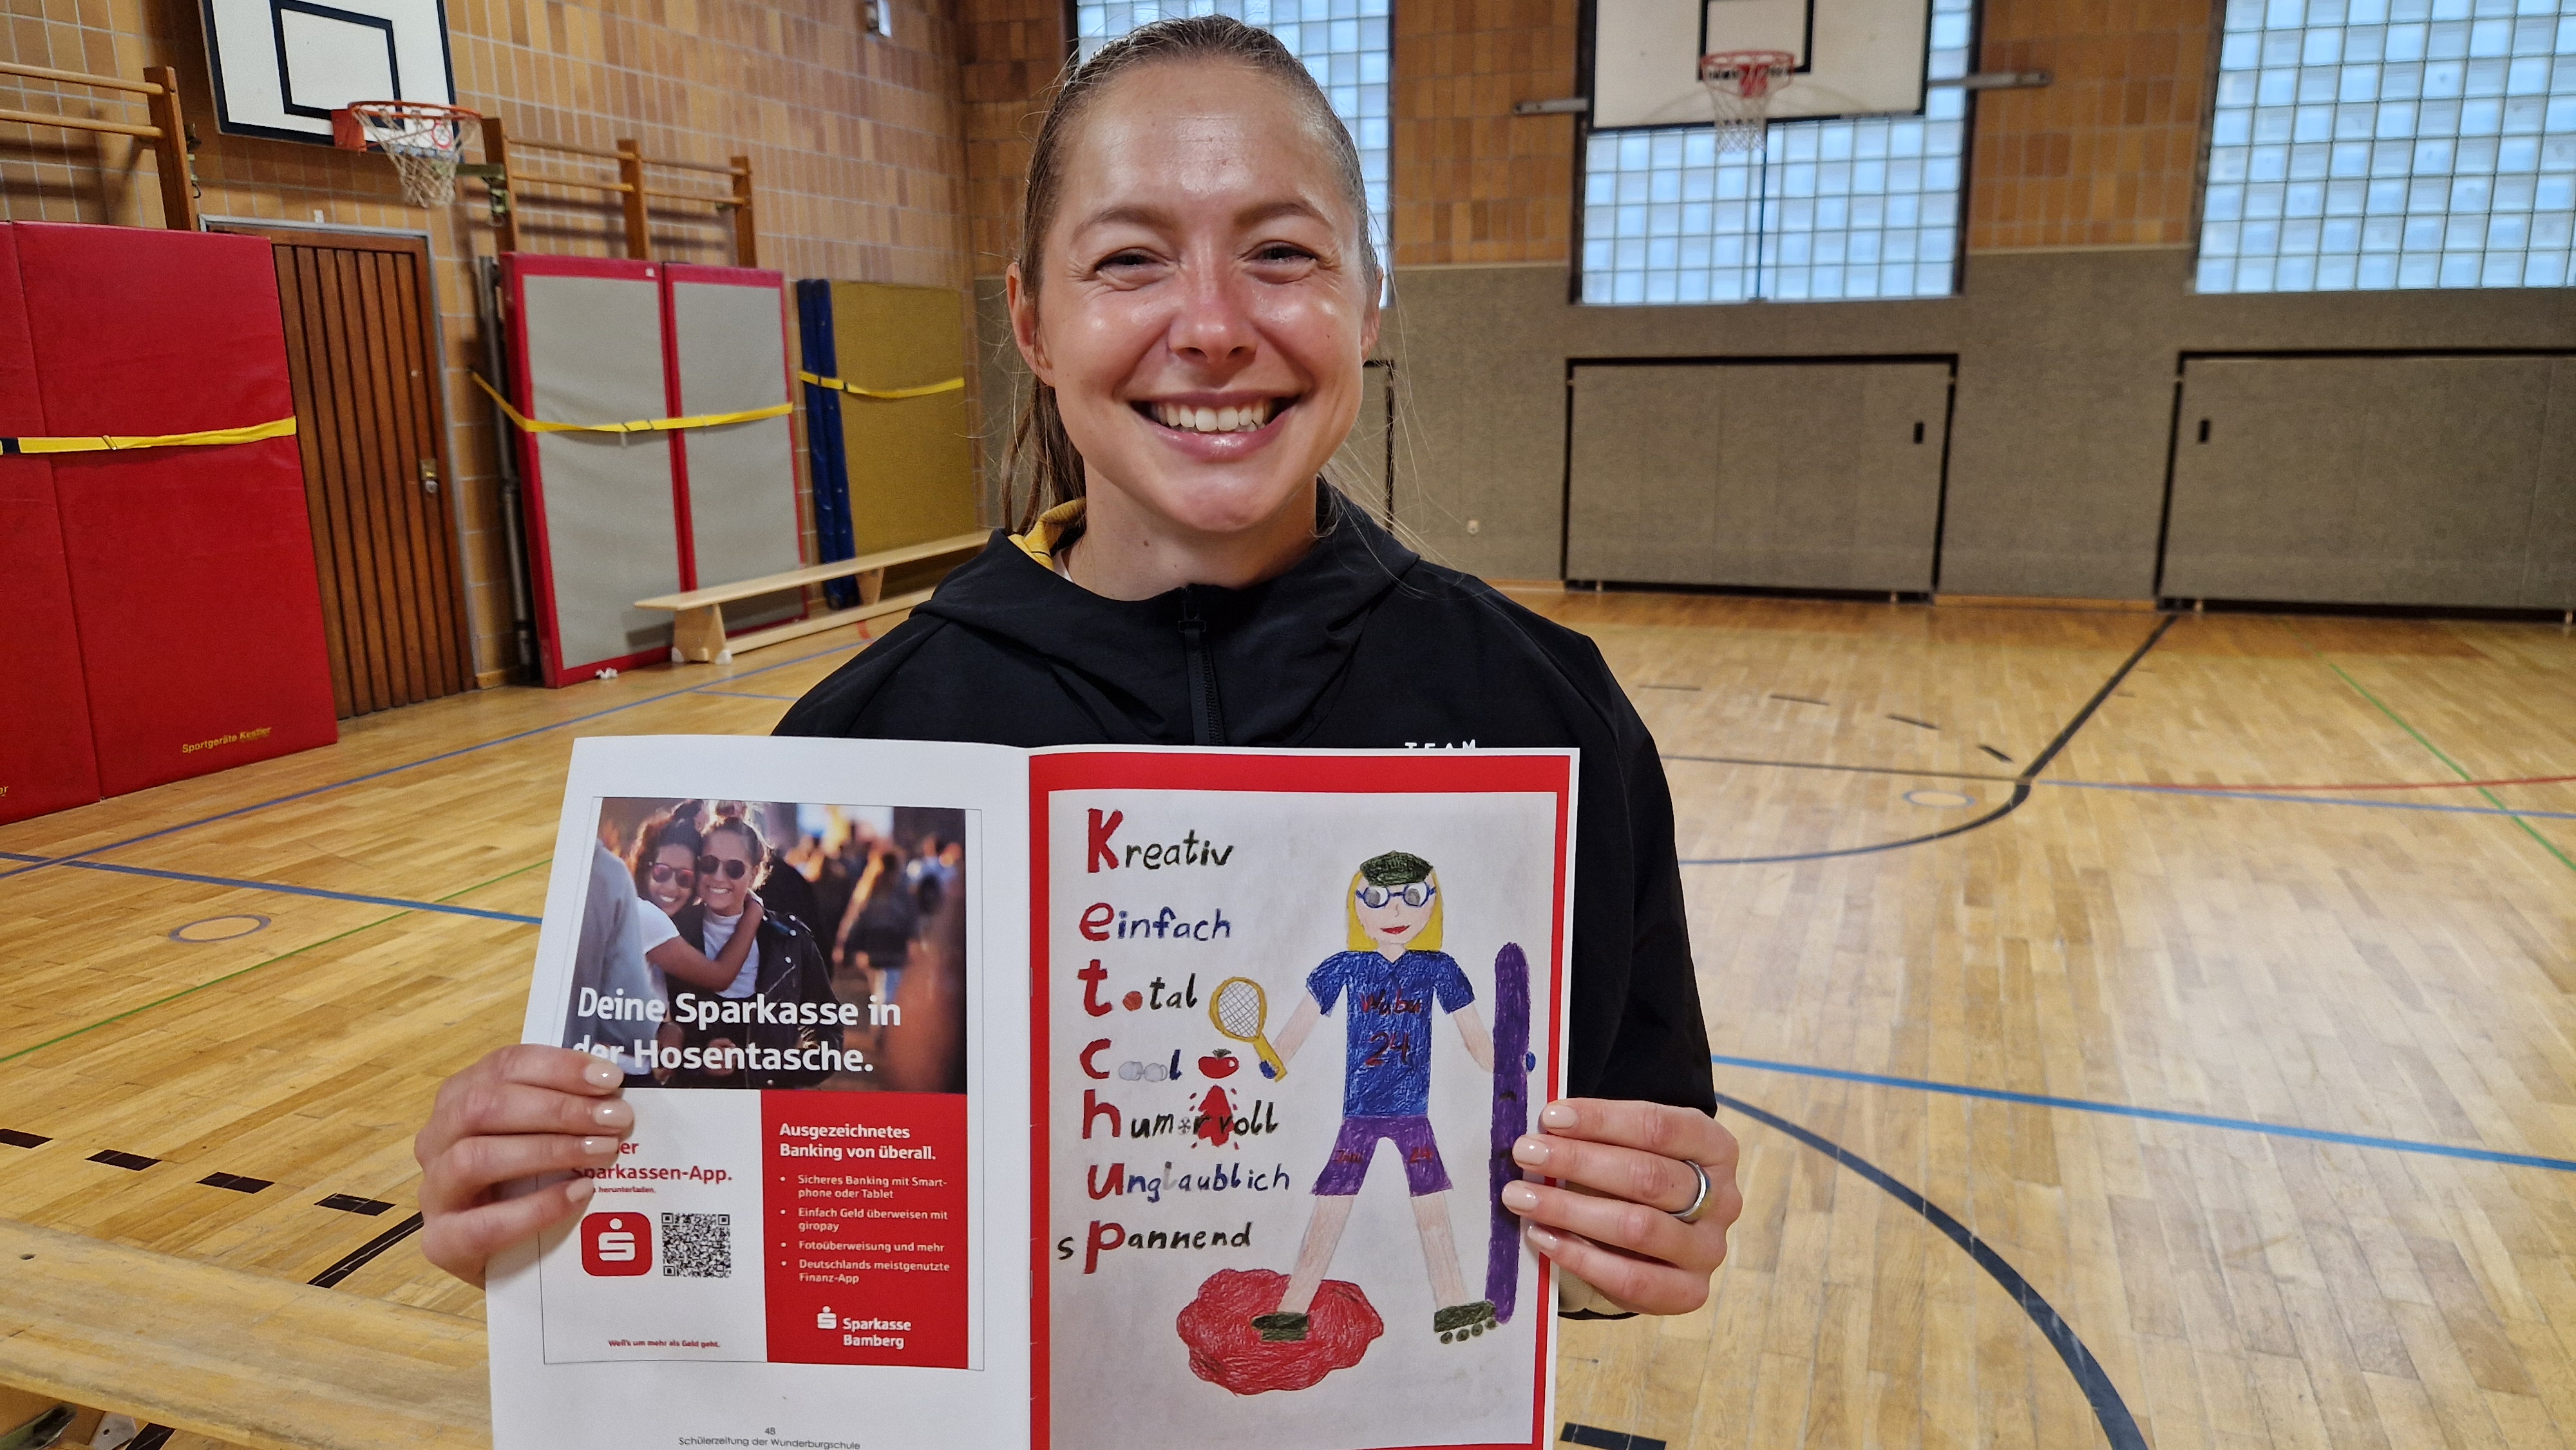 Sportgeräte Kestler
TEAM
Deine Sparkasse in
der Hosentasche.
Sparkassen-App.
herunterladen.
Ausgezeichnetes
Banking von überall.
• Sicheres Banking mit Smart-
phone oder Tablet
• Einfach Geld überweisen mit
giropay
• Fotoüberweisung und mehr
• Deutschlands meistgenutzte
Finanz-App
Sparkasse
Bamberg
Weil's um mehr als Geld geht.
48
Schülerzeitung der Wunderburgschule
Kreativ
einfach
total
cool
humorvoll
unglaublich
spannend
24